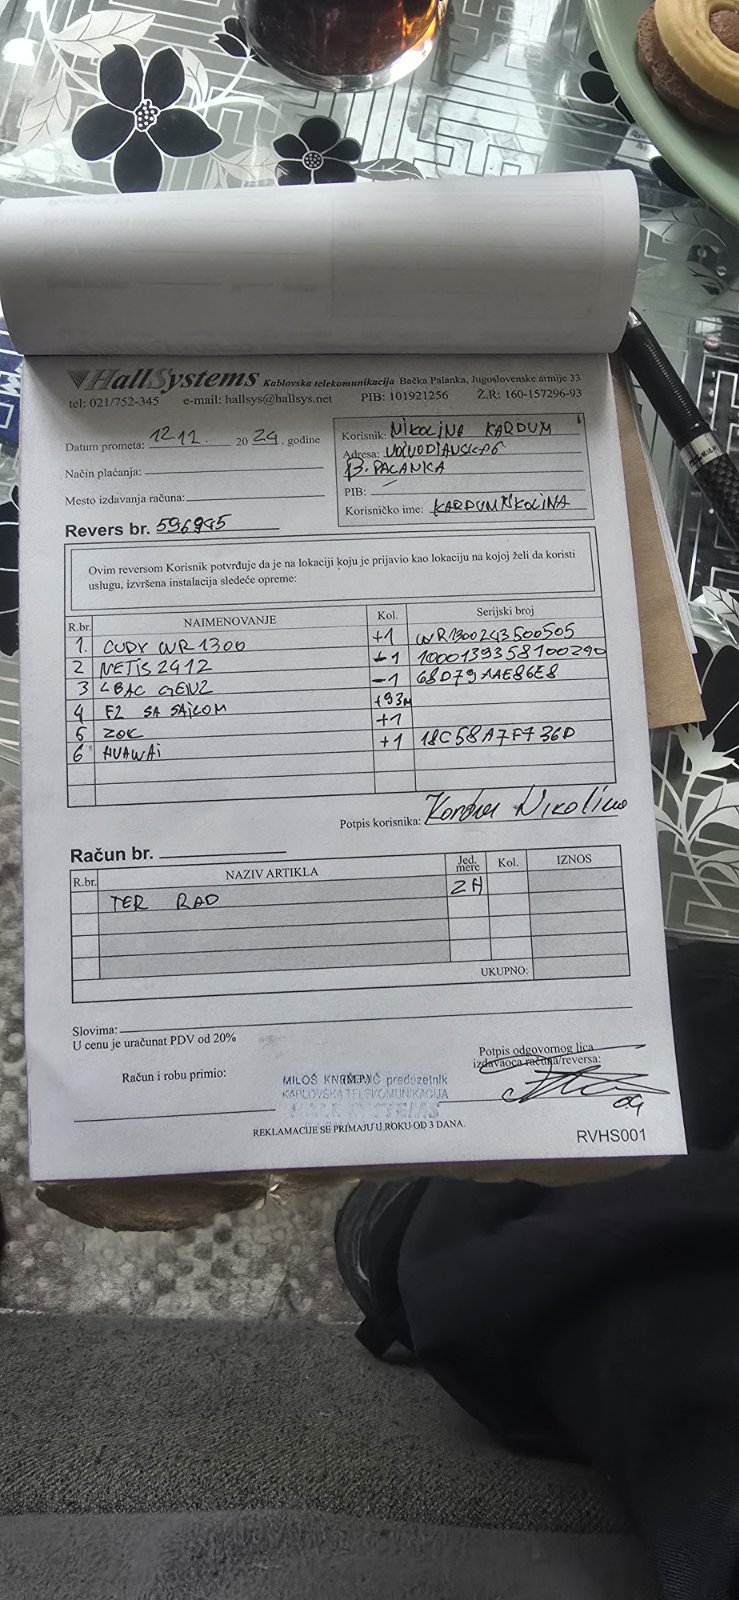 HallSystems Kablovska telekomunikacija Bačka Palanka, Jugoslovenske armije 33
tel: 021/752-345 e-mail: hallsys@hallsys.net PIB: 101921256 Ž.R: 160-157296-93
Datum prometa: 12 12. 20 24. godine
Način plaćanja:
Mesto izdavanja računa:
Revers br. 596995
Korisnik: NIKOLINA KARDUM
Adresa:
B. PALANKA
PIB:
Korisničko ime: KARDUMNIKOLINA
Ovim reversom Korisnik potvrđuje da je na lokaciji koju je prijavio kao lokaciju na kojoj želi da koristi
uslugu, izvršena instalacija sledeće opreme:
R.br. NAIMENOVANJE Kol. Serijski broj
1. CUDY WR 1300 +1 WR1300243500505
2 NETIS 2412 -1 1000139358100290
3 LBAC GEN2 -1 68D791AAE86E8
4 F2 SA SAJLOM +93M
5 ZOK +1
6 HUAWAI +1 18C58A7F736D
Potpis korisnika: Kardum Nikolina
Račun br.
R.br. NAZIV ARTIKLA Jed. mere Kol. IZNOS
TER RAD 2H
UKUPNO:
Slovima:
U cenu je uračunat PDV od 20%
Račun i robu primio:
(M.P.)
Potpis odgovornog lica
izdavaoca računa/reversa:
MILOŠ preduzetnik
KABLOVSKA TELEKOMUNIKACIJA
HALL SYSTEMS
REKLAMACIJE SE PRIMAJU U ROKU OD 3 DANA.
RVHS001